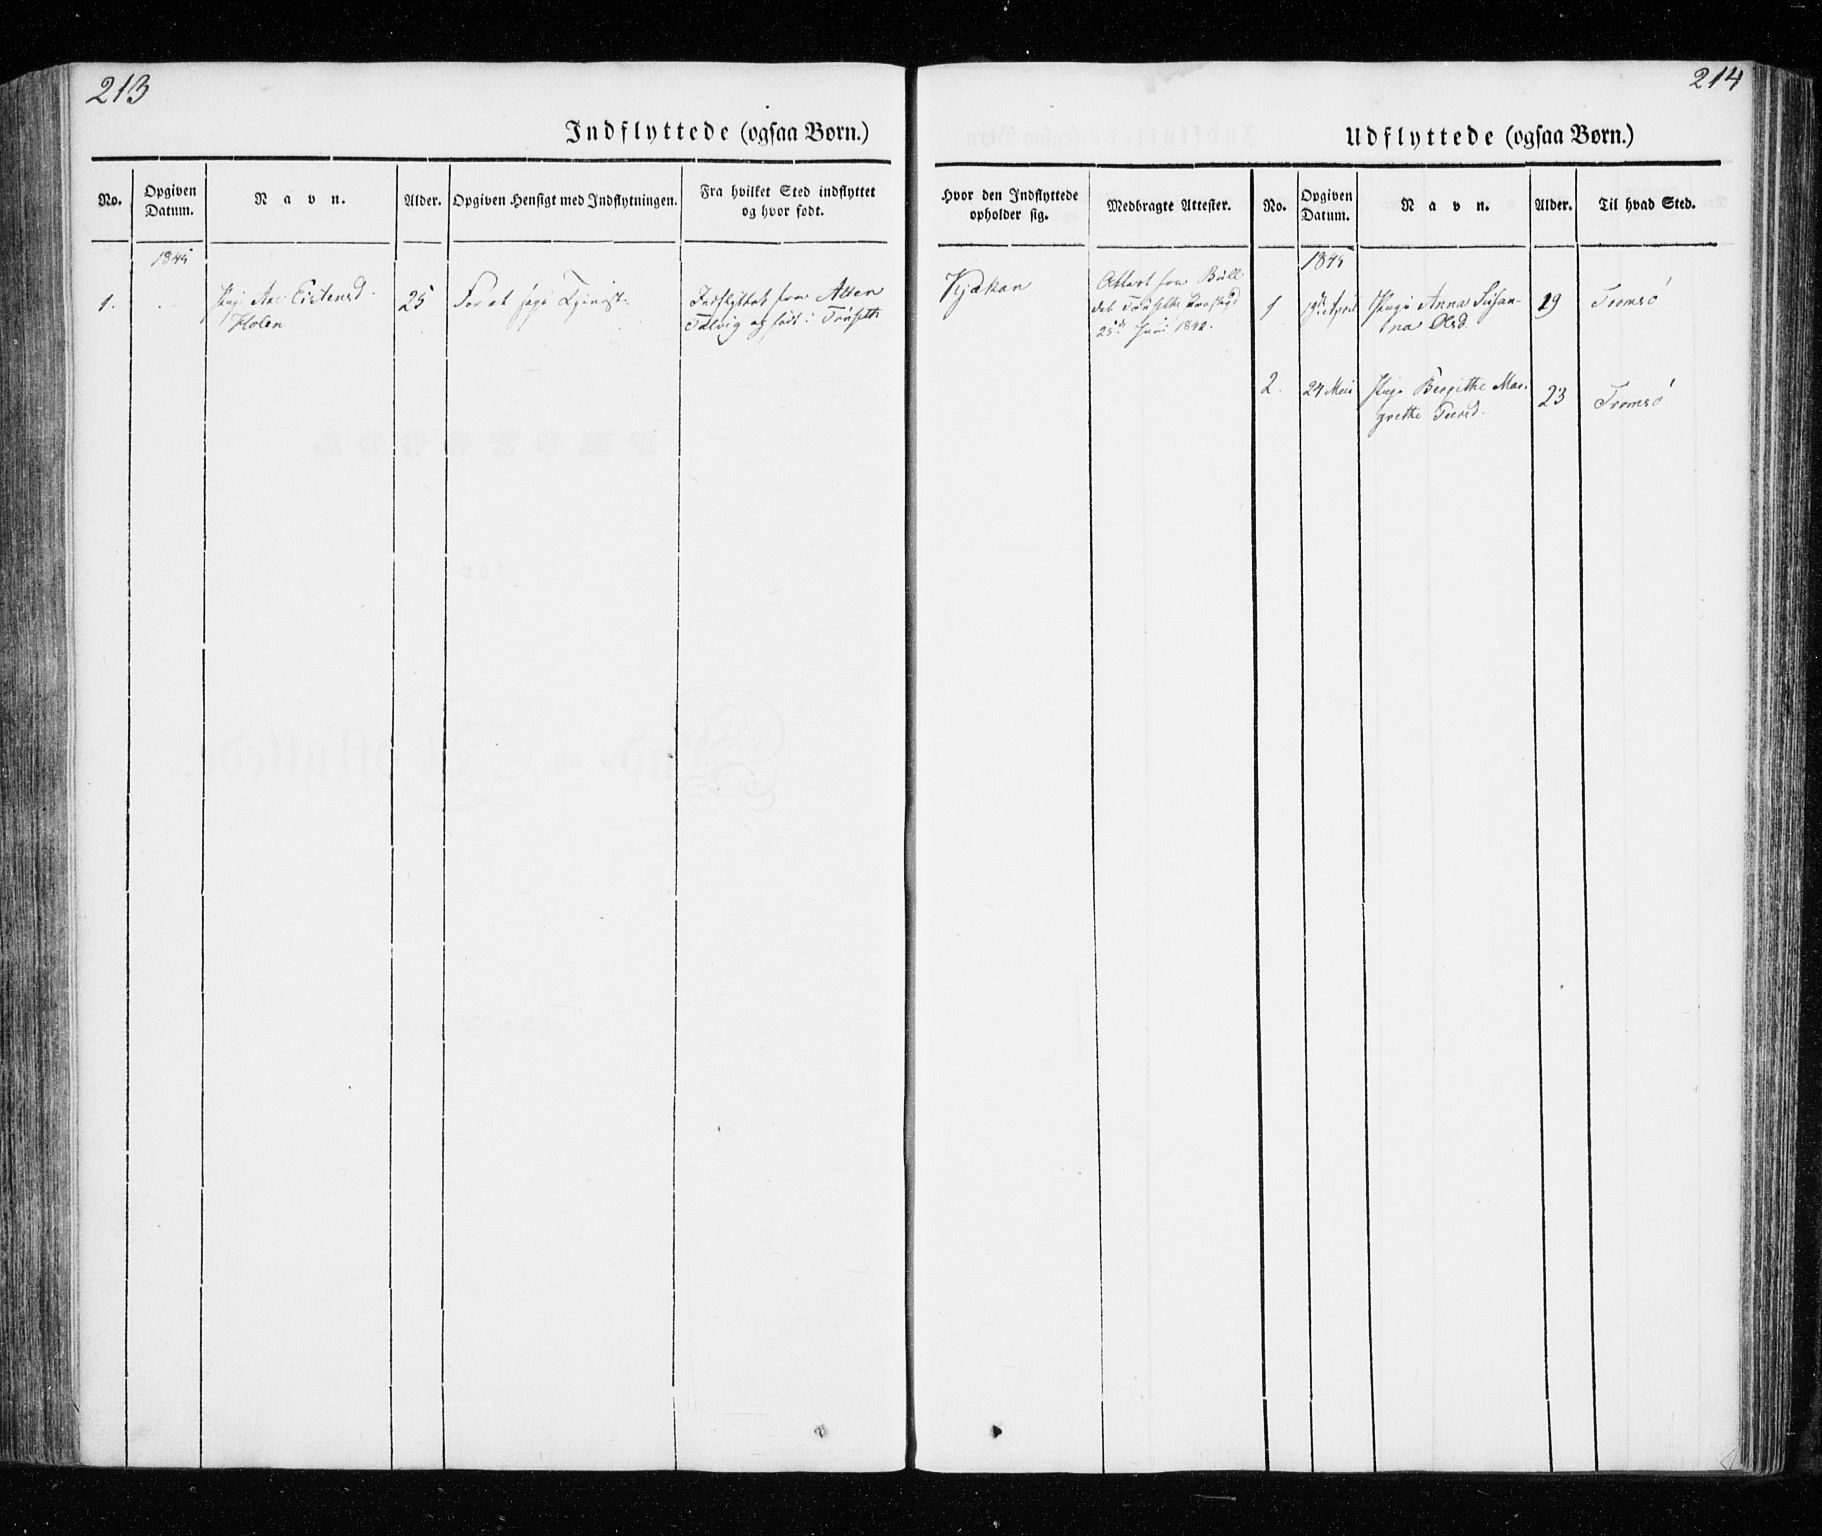 213
Indflyttede (ogsaa Børn.)
No.
Opgiven
Datum.
Navn.
Alder.
Opgiven Hensigt med Indflytningen.
Fra hvilket Sted indflyttet
og hvor født.
1845
1.
Pige Eistensd.
Holen
25
For at søge Tjenest.
Indflyttet fra Alten
Talvig og født i
214
Udflyttede (ogsaa Børn.)
Hvor den Indflyttede
opholder sig.
Medbragte Attester.
No.
Opgiven
Datum.
Navn.
Alder.
Til hvad Sted.
Kjækan
Attest fra
25de Juni 1842.
1845
1
April
Pige Anna Susan-
na Olsd.
19
Tromsø
2.
24 Mai
Pige Bergithe Mar-
grethe
23
Tromsø